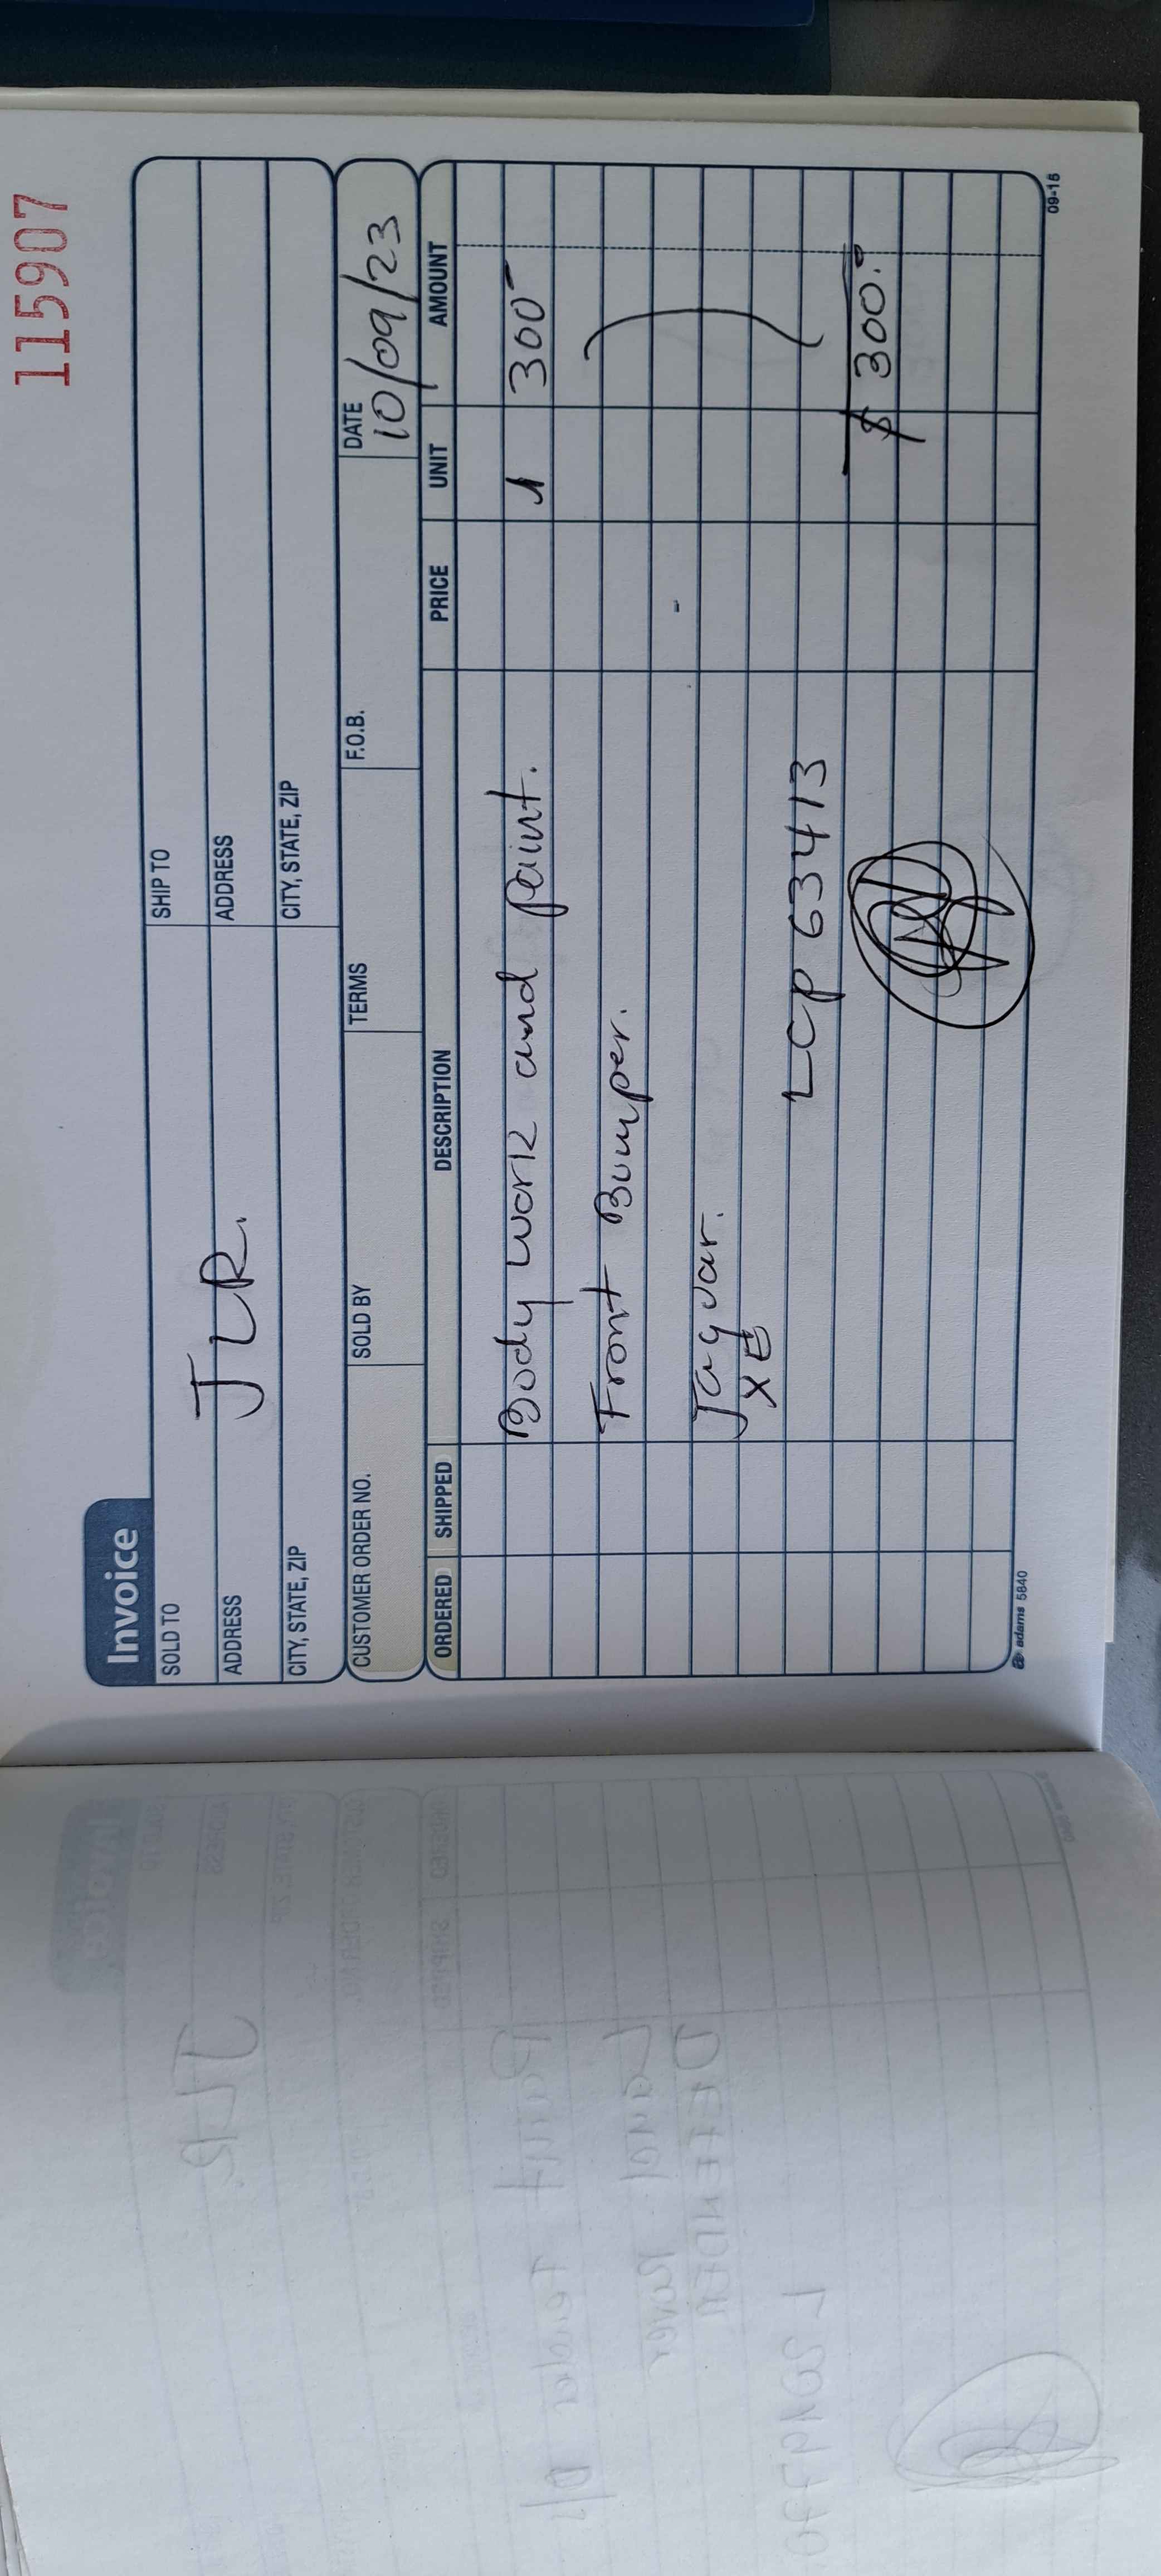 115907
Invoice
SOLD TO
SHIP TO
JLR.
ADDRESS
ADDRESS
CITY, STATE, ZIP
CITY, STATE, ZIP
CUSTOMER ORDER NO. SOLD BY TERMS F.O.B. DATE
10/09/23
ORDERED SHIPPED DESCRIPTION PRICE UNIT AMOUNT
Body work and paint. 1 300
Front Bumper.
Jaguar.
XE
LCP63413
$ 300.
adams 5840 09-15
JLR
Paint
DEFENDER